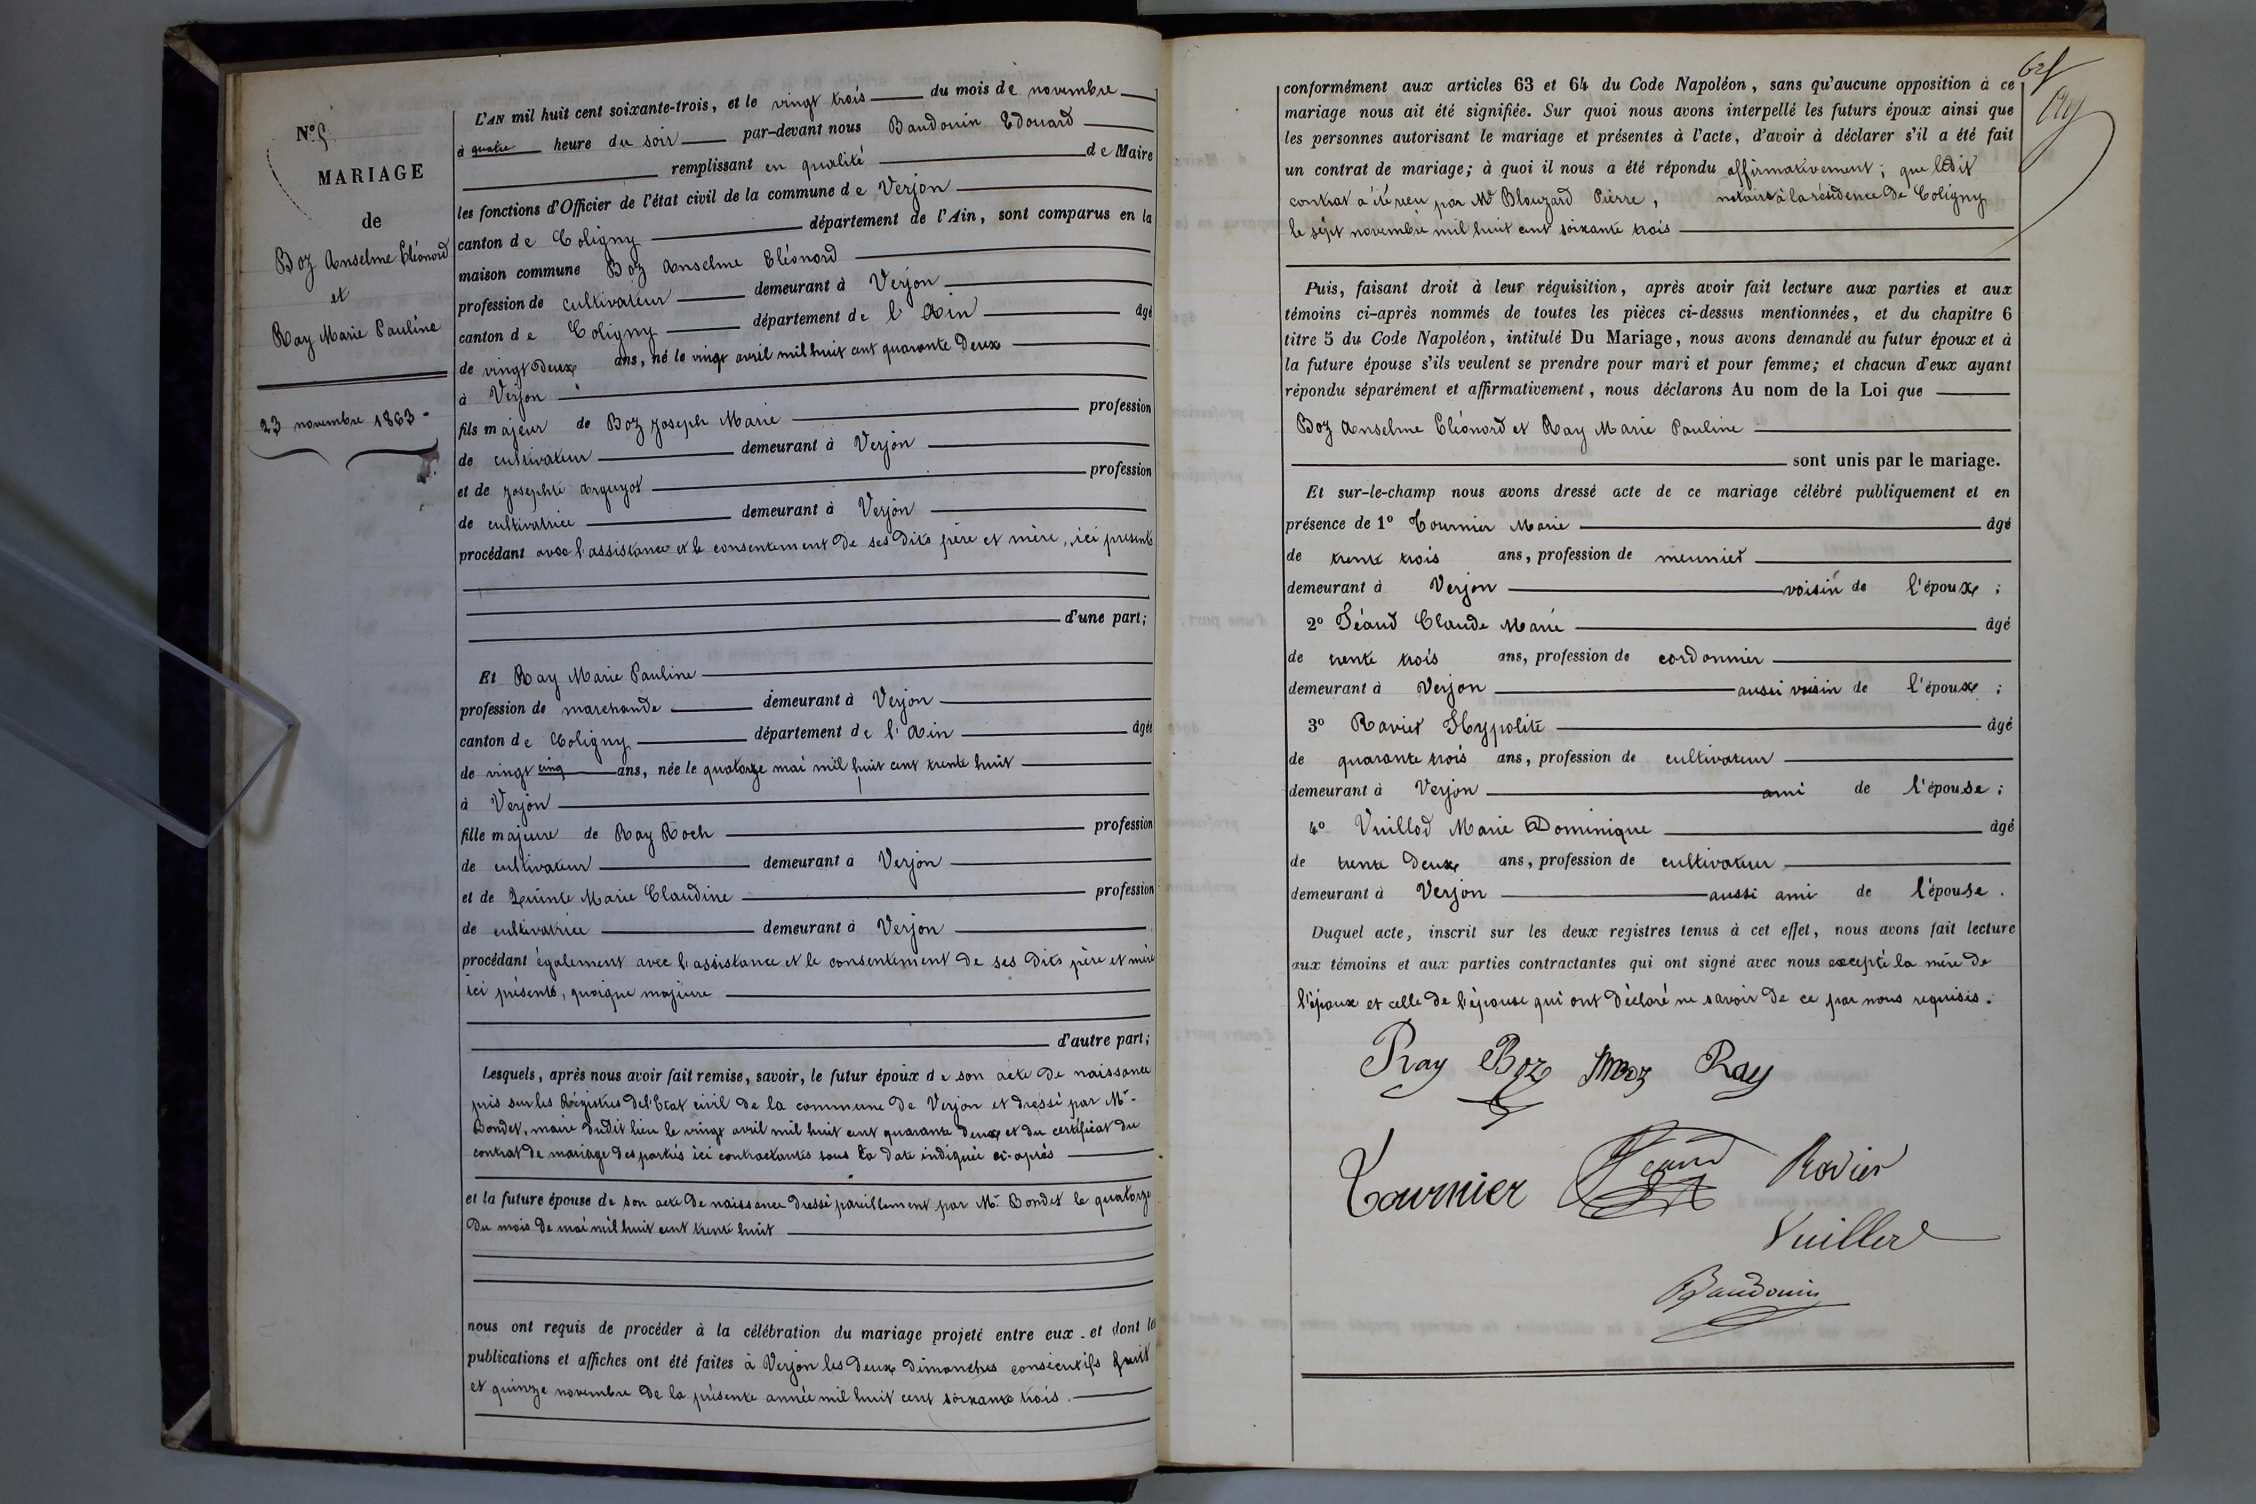 N°
MARIAGE
de
Boz Anselme Eléonord
et
Ray Marie Pauline
23 novembre 1863
L'AN mil huit cent soixante-trois, et le vingt trois du mois de novembre
à quatre heure du soir par-devant nous Baudouin Edouard
remplissant en qualité de Maire
les fonctions d'Officier de l'état civil de la commune de Verjon
canton de Coligny département de l'Ain, sont comparus en la
maison commune Boz Anselme Eléonord
profession de cultivateur demeurant à Verjon
canton de Coligny département de l'Ain âgé
de vingt deux ans, né le vingt avril mil huit cent quarante deux
à Verjon
fils majeur de Boz Joseph Marie profession
de cultivateur demeurant à Verjon
et de Josephte profession
de cultivatrice demeurant à Verjon
procédant avec l'assistance et le consentement de ses dits père et mère, ici présents
d'une part;
Et Ray Marie Pauline
profession de marchande demeurant à Verjon
canton de Coligny département de l'Ain âgée
de vingt cinq ans, née le quatorze mai mil huit cent trente huit
à Verjon
fille majeure de Ray Roch profession
de cultivateur demeurant à Verjon
et de Quinte Marie Claudine profession
de cultivatrice demeurant à Verjon
procédant également avec l'assistance et le consentement de ses dits père et mère
ici présents, quoique majeure
d'autre part;
Lesquels, après nous avoir fait remise, savoir, le futur époux de son acte de naissance
pris sur les Régistres de l'Etat civil de la commune de Verjon et dressé par Mr
Bondet, maire dudit lieu le vingt avril mil huit cent quarante deux et du certificat du
contrat de mariage des parties ici contractantes sous la date indiquée ci-après
et la future épouse de son acte de naissance dressé pareillement par Mr Bondet le quatorze
du mois de mai mil huit cent trente huit
nous ont requis de procéder à la célébration du mariage projeté entre eux et dont les
publications et affiches ont été faites à Verjon les deux dimanches consécutifs huit
et quinze novembre de la présente année mil huit cent soixante trois.
conformément aux articles 63 et 64 du Code Napoléon, sans qu'aucune opposition à ce
mariage nous ait été signifiée. Sur quoi nous avons interpellé les futurs époux ainsi que
les personnes autorisant le mariage et présentes à l'acte, d'avoir à déclarer s'il a été fait
un contrat de mariage; à quoi il nous a été répondu affirmativement; que ledit
contrat a été reçu par Me Blouzard Pierre, notaire à la résidence de Coligny
le sept novembre mil huit cent soixante trois
Puis, faisant droit à leur réquisition, après avoir fait lecture aux parties et aux
témoins ci-après nommés de toutes les pièces ci-dessus mentionnées, et du chapitre 6
titre 5 du Code Napoléon, intitulé Du Mariage, nous avons demandé au futur époux et à
la future épouse s'ils veulent se prendre pour mari et pour femme; et chacun d'eux ayant
répondu séparément et affirmativement, nous déclarons Au nom de la Loi que
Boz Anselme Eléonord et Ray Marie Pauline
sont unis par le mariage.
Et sur-le-champ nous avons dressé acte de ce mariage célébré publiquement et en
présence de 1° Tournier Marie âgé
de trente trois ans, profession de meunier
demeurant à Verjon voisin de l'époux;
2° Féaud Claude Marie âgé
de trente trois ans, profession de cordonnier
demeurant à Verjon aussi voisin de l'époux;
3° Ravier Hypolite âgé
de quarante trois ans, profession de cultivateur
demeurant à Verjon ami de l'épouse;
4° Vuillod Marie Dominique âgé
de trente deux ans, profession de cultivateur
demeurant à Verjon aussi ami de l'épouse.
Duquel acte, inscrit sur les deux registres tenus à cet effet, nous avons fait lecture
aux témoins et aux parties contractantes qui ont signé avec nous excepté la mère de
l'époux et celle de l'épouse qui ont déclaré ne savoir de ce par nous requises.
Ray Boz Ray
Tournier Ravier
Baudouin